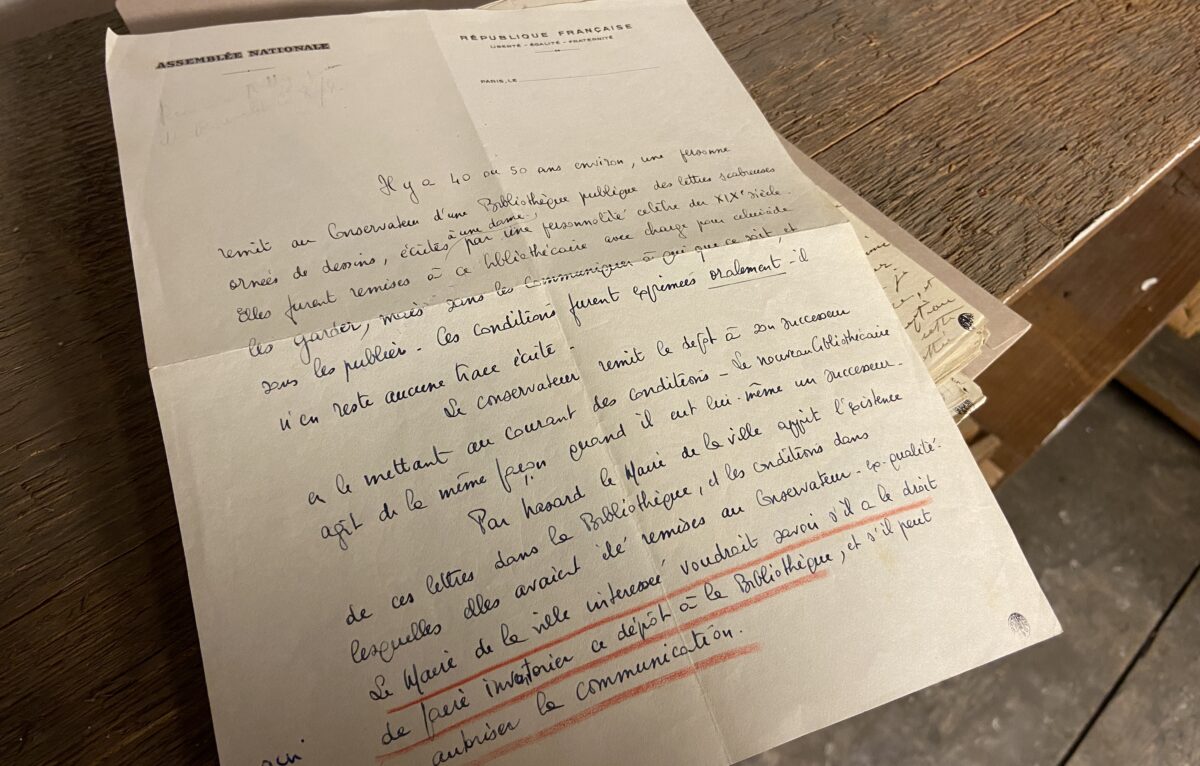 ASSEMBLÉE NATIONALE
RÉPUBLIQUE FRANÇAISE
LIBERTÉ - ÉGALITÉ - FRATERNITÉ
PARIS, LE
Il y a 40 ou 50 ans environ, une personne
remit au Conservateur d'une Bibliothèque publique des lettres scabreuses
ornées de dessins, écrites à une dame, par une personnalité célèbre du XIXe siècle.
Elles furent remises à ce bibliothécaire avec charge pour celui-ci de
les garder, mais sans les communiquer à qui que ce soit, et
sans les publier - Ces conditions furent exprimées oralement - il
n'en reste aucune trace écrite -
Le conservateur remit le dépôt à son successeur
en le mettant au courant des conditions - Le nouveau bibliothécaire
agit de la même façon quand il eut lui-même un successeur -
Par hasard le Maire de la ville apprit l'existence
de ces lettres dans la Bibliothèque, et les conditions dans
lesquelles elles avaient été remises au Conservateur - ex-qualité.
Le Maire de la ville intéressé voudrait savoir s'il a le droit
de faire inventorier ce dépôt à la Bibliothèque, et s'il peut
autoriser la communication.